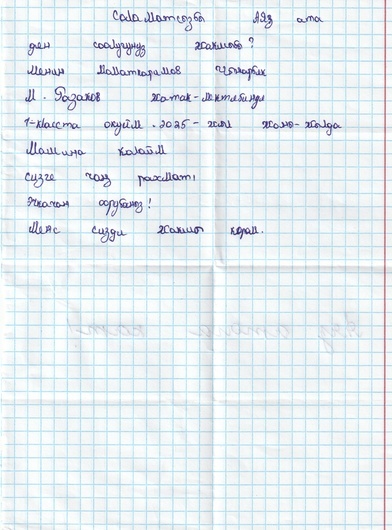 Саламатсызбы Аяз ата
ден соолугунуз жакшыбы?
Менин Маматкаримов Чынарбек
М. Раззаков жатак-мектебинде
1-класста окуйм. 2025-жыл жаны-жылда
Машина калайм
сизге чоң рахмат!
Эчкачан оорубаңыз!
Мен сизди жакшы көрөм.
Аяз атага кат!